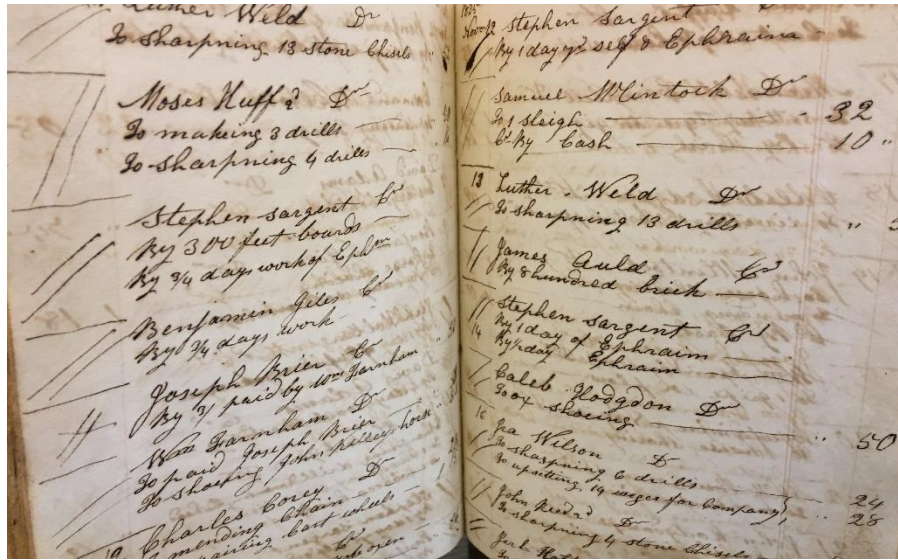 Luther Weld Dr
To sharpning 13 stone Chisels
Moses Huff 2d Dr
To making 3 drills
To sharpning 4 drills
Stephen Sargent Cr
By 300 feet boards
By 3/4 days work of Ephm
Benjamin Giles Cr
By 3/4 days work
Joseph Brier Cr
By 3/ paid by Wm Farnham
Wm Farnham Dr
To paid Joseph Brier
To shoeing John Kelsey horse
Charles Corey Dr
To mending Chain
cart wheels
Cr
Novr 12 Stephen Sargent
By 1 day self & Ephraim
Samuel McClintock Dr
To 1 sleigh 32
Cr By Cash 10 "
13 Luther Weld Dr
To sharpning 13 drills "
" James Auld Cr
By 8 hundred brick
" Stephen Sargent Cr
By 1 day of Ephraim
14 By 1/2 day Ephraim
" Caleb Hodgdon Dr
To ox shoeing " 50
16 Ira Wilson Dr
To sharpning 6 drills 24
To upsetting 14 wedges for Company 28
" John Dr
To sharpning 4 stone Chisels